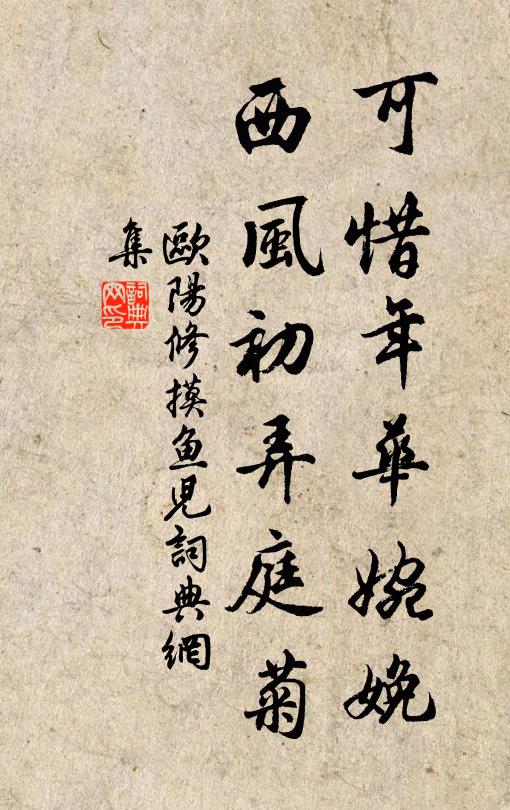 可惜年華婉娩
西風初弄庭菊
歐陽修摸鱼児詞典網
集
詞典
网印